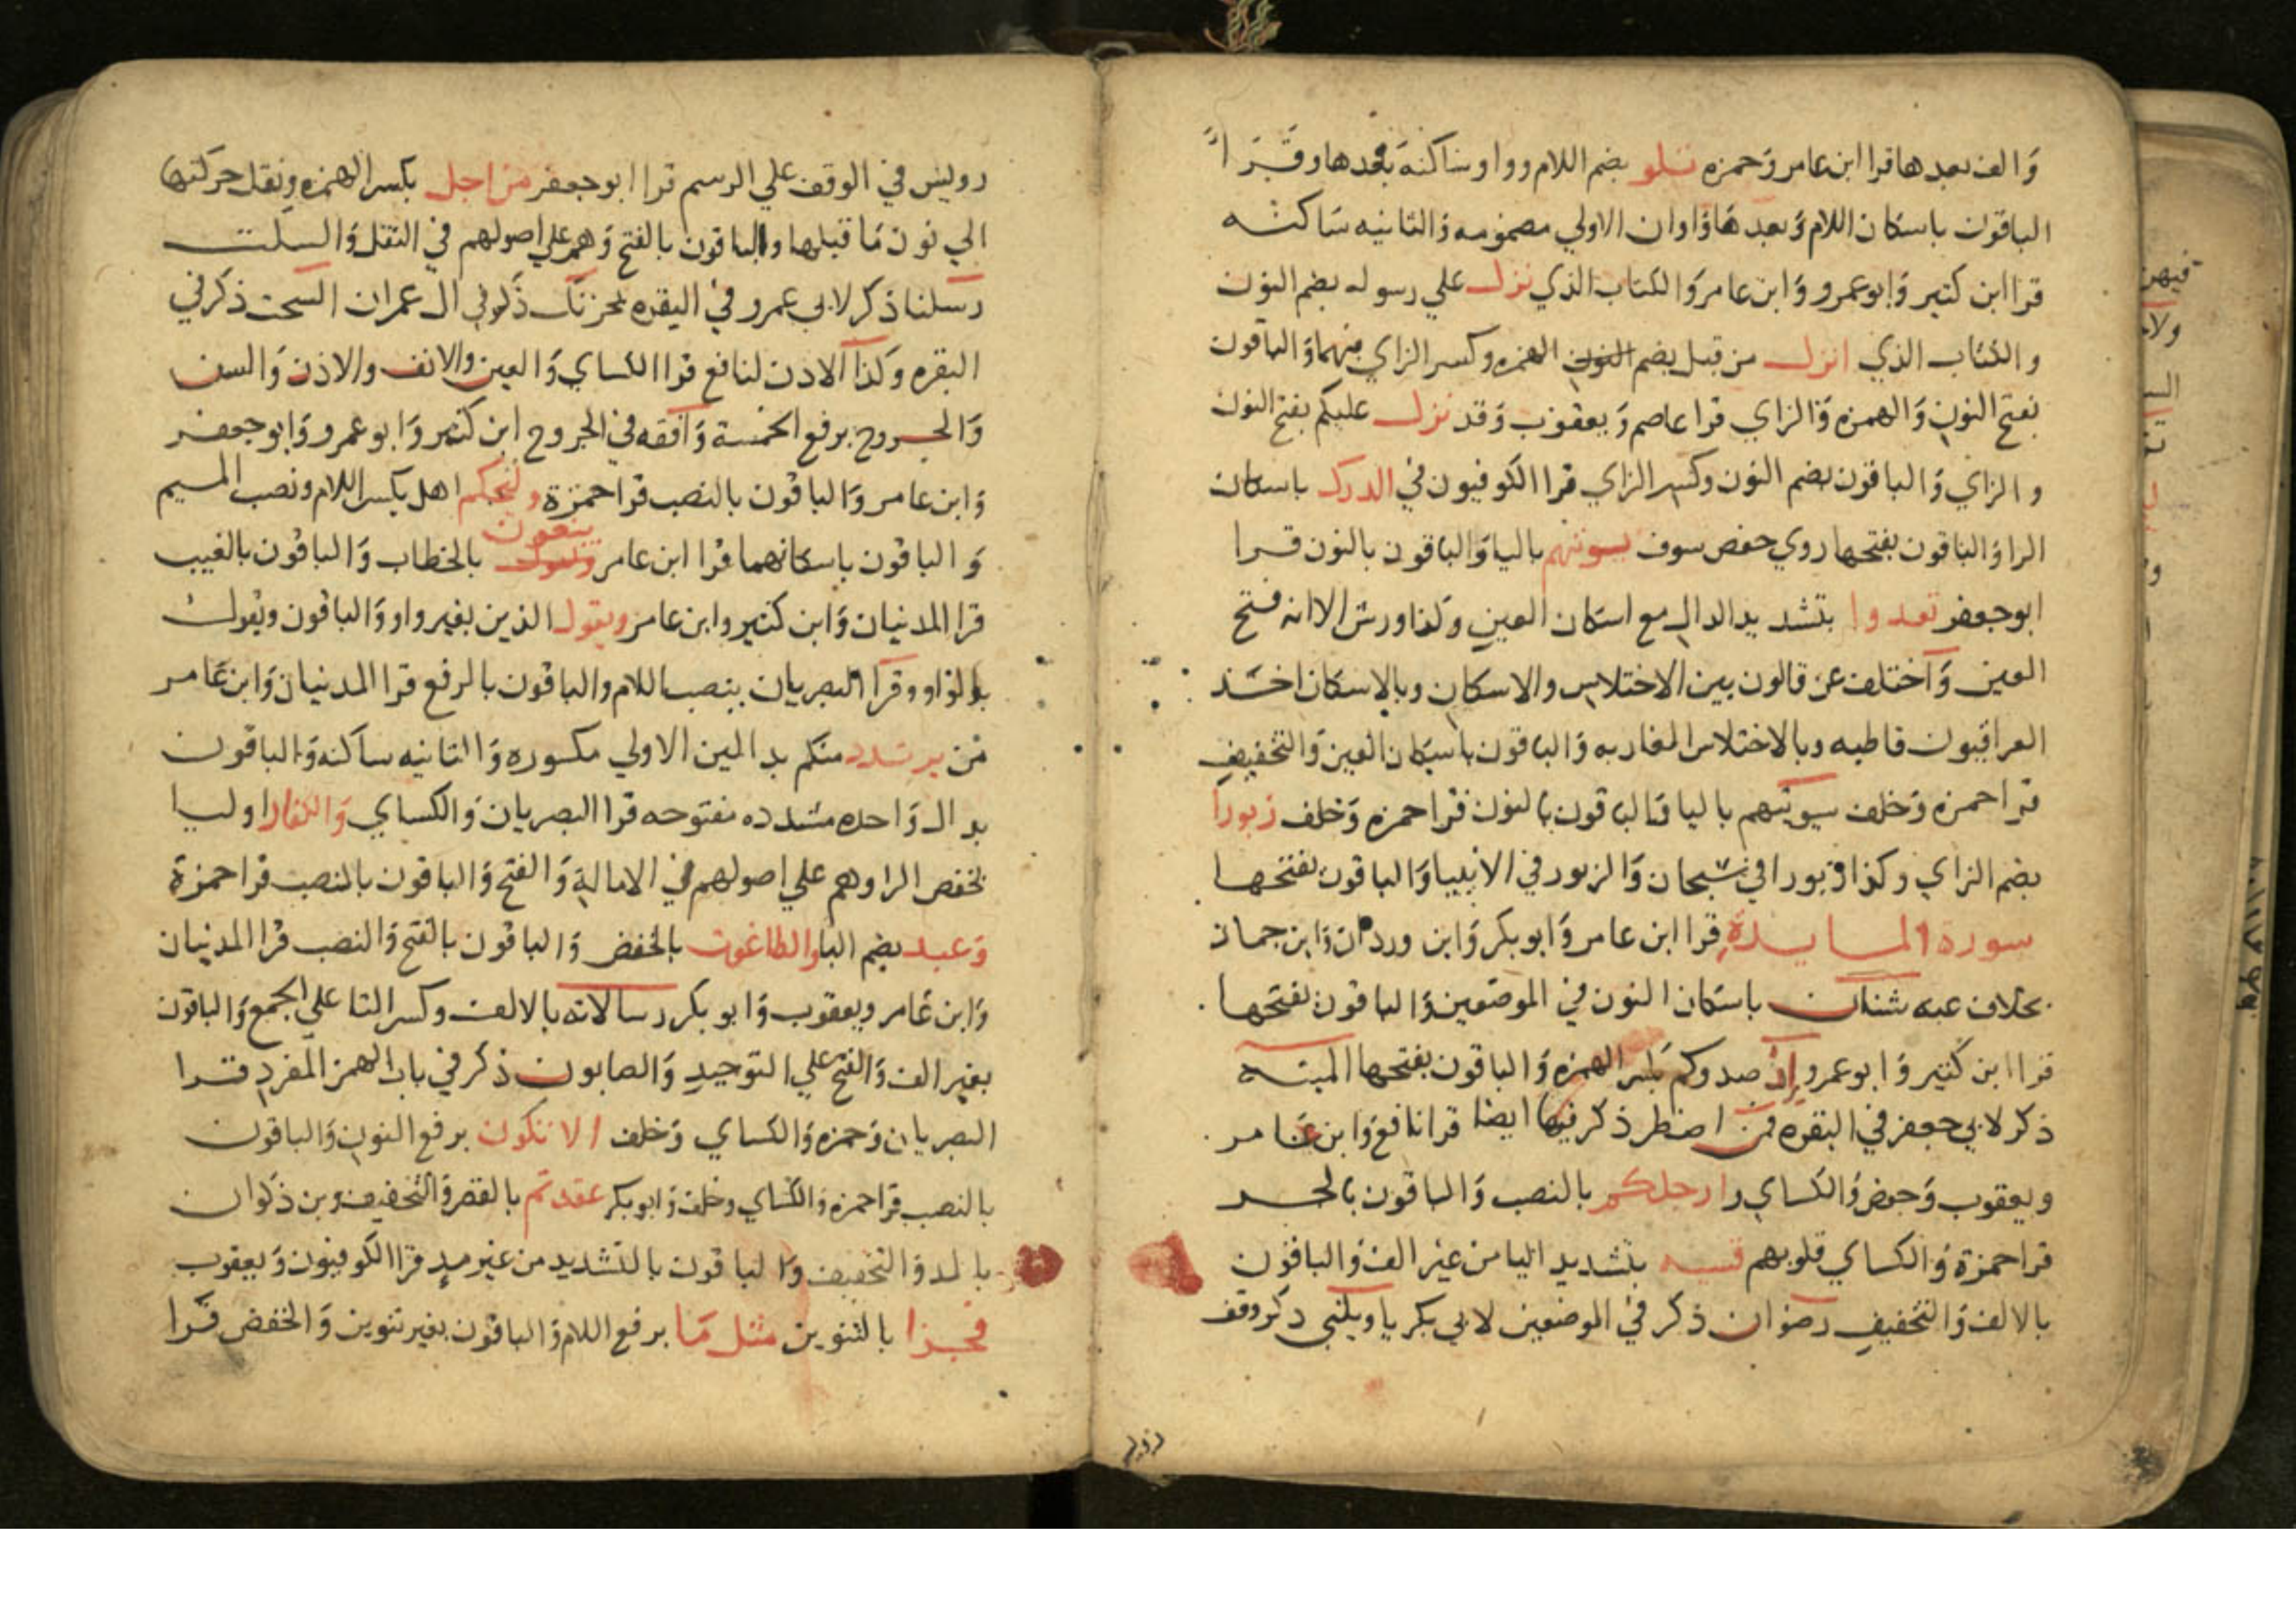 والف بعدها قرا ابن عامر وحمزه تلو بضم اللام وواو ساكنة بعدها وقرا
الباقون باسكان اللام وبعدها واوان الاولي مضمومه والثانيه ساكنه
قرا ابن كثير وابو عمرو وابن عامر والكتاب الذي نزل علي رسوله بضم النون
والكتاب الذي انزل من قبل بضم النون الهمزه وكسر الزاي فيهما والباقون
بفتح النون والهمزه والزاي قرا عاصم ويعقوب وقد نزل عليكم بفتح النون
والزاي والباقون بضم النون وكسر الزاي قرا الكوفيون في الدرك باسكان
الرا والباقون بفتحها روي حفص سوف يوتيهم باليا والباقون بالنون قرا
ابو جعفر تعدوا بتشديد الدال مع اسكان العين وكذا ورش الا انه فتح
العين واختلف عن قالون بين الاختلاس والاسكان وبالاسكان اخذ
العراقيون قاطبه وبالاختلاس المغاربه والباقون باسكان العين والتخفيف
قرا حمزه وخلف سيوتيهم باليا والباقون بالنون قرا حمزه وخلف زبورا
بضم الزاي وكذا زبورا في سبحان والزبور في الانبيا والباقون بفتحها
سورة المايدة قرا ابن عامر وابو بكر وابن وردان وابن جماز
بخلاف عنه شنان باسكان النون في الموضعين والباقون بفتحها
قرا ابن كثير وابو عمرو إن صدوكم بكسر الهمزه والباقون بفتحها الميته
ذكر لابي جعفر في البقره فمن اضطر ذكر فيها ايضا قرا نافع وابن عامر
ويعقوب وحفص والكساي وارجلكم بالنصب والباقون بالجر
قرا حمزة والكساي قلوبهم قسيه بتشديد اليا من غير الف والباقون
بالالف والتخفيف رضوان ذكر في الموضعين لابي بكر يا ويلتي ذكر وقف
رويس في الوقف علي الرسم قرا ابو جعفر من اجل بكسر الهمزه ونقل حركتها
الي نون ما قبلها والباقون بالفتح وهم علي اصولهم في النقل والسكت
رسلنا ذكر لابي عمرو في البقره يحزنك ذكر في ال عمران السحت ذكر في
البقره وكذا الاذن لنافع قرا الكساي والعين والانف والاذن والسن
والجروح برفع الخمسة وافقه في الجروح ابن كثير وابو عمرو وابو جعفر
وابن عامر والباقون بالنصب قرا حمزة وليحكم اهل بكسر اللام ونصب الميم
والباقون باسكانهما قرا ابن عامر يبغون بالخطاب والباقون بالغيب
قرا المدنيان وابن كثير وابن عامر ويقول الذين بغير واو والباقون ويقول
بالواو وقرا البصريان بنصب اللام والباقون بالرفع قرا المدنيان وابن عامر
من يرتدد منكم بدالين الاولي مكسوره والثانيه ساكنه والباقون
بدال واحده مشدده مفتوحه قرا البصريان والكساي والكفار اوليا
بخفض الرا وهم علي اصولهم في الامالة والفتح والباقون بالنصب قرا حمزة
وعبد بضم البا والطاغوت بالخفض والباقون بالفتح والنصب قرا المدنيان
وابن عامر ويعقوب وابو بكر رسالاته بالالف وكسر التا علي الجمع والباقون
بغير الف والفتح علي التوحيد والصابون ذكر في باب الهمز المفرد قرا
البصريان وحمزه والكساي وخلف الا تكون برفع النون والباقون
بالنصب قرا حمزه والكساي وخلف وابو بكر عقدتم بالقصر والتخفيف وبن ذكوان
بالمد والتخفيف والباقون بالتشديد من غير مد قرا الكوفيون ويعقوب
فجزا بالتنوين مثل ما برفع اللام والباقون بغير تنوين والخفض قرا